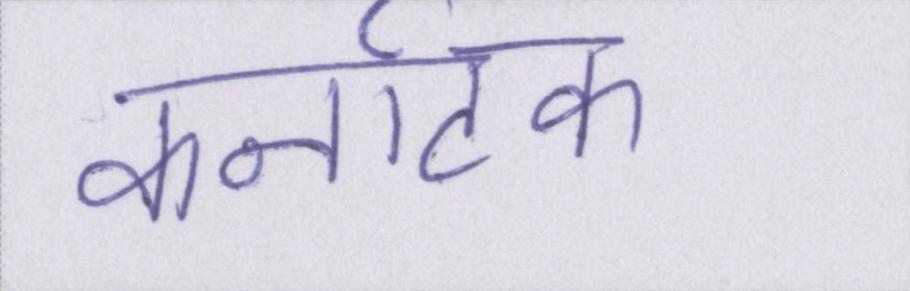 कर्नाटक